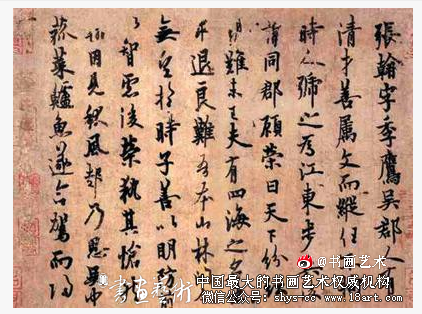 張翰字季鷹吳郡人有
清才善屬文而縱任
時人號之為江東步
謂同郡顧榮曰天下紛
難未已夫有四海之名
求退良難吾本山林
無望於時子善以明防前
智慮後榮執其愴
翰因見秋風起乃思吳中
菰菜鱸魚遂命駕而歸
@书画艺术
書畫藝術
中国最大的书画艺术权威机构
微信公众号: shys-cc www.18art.com